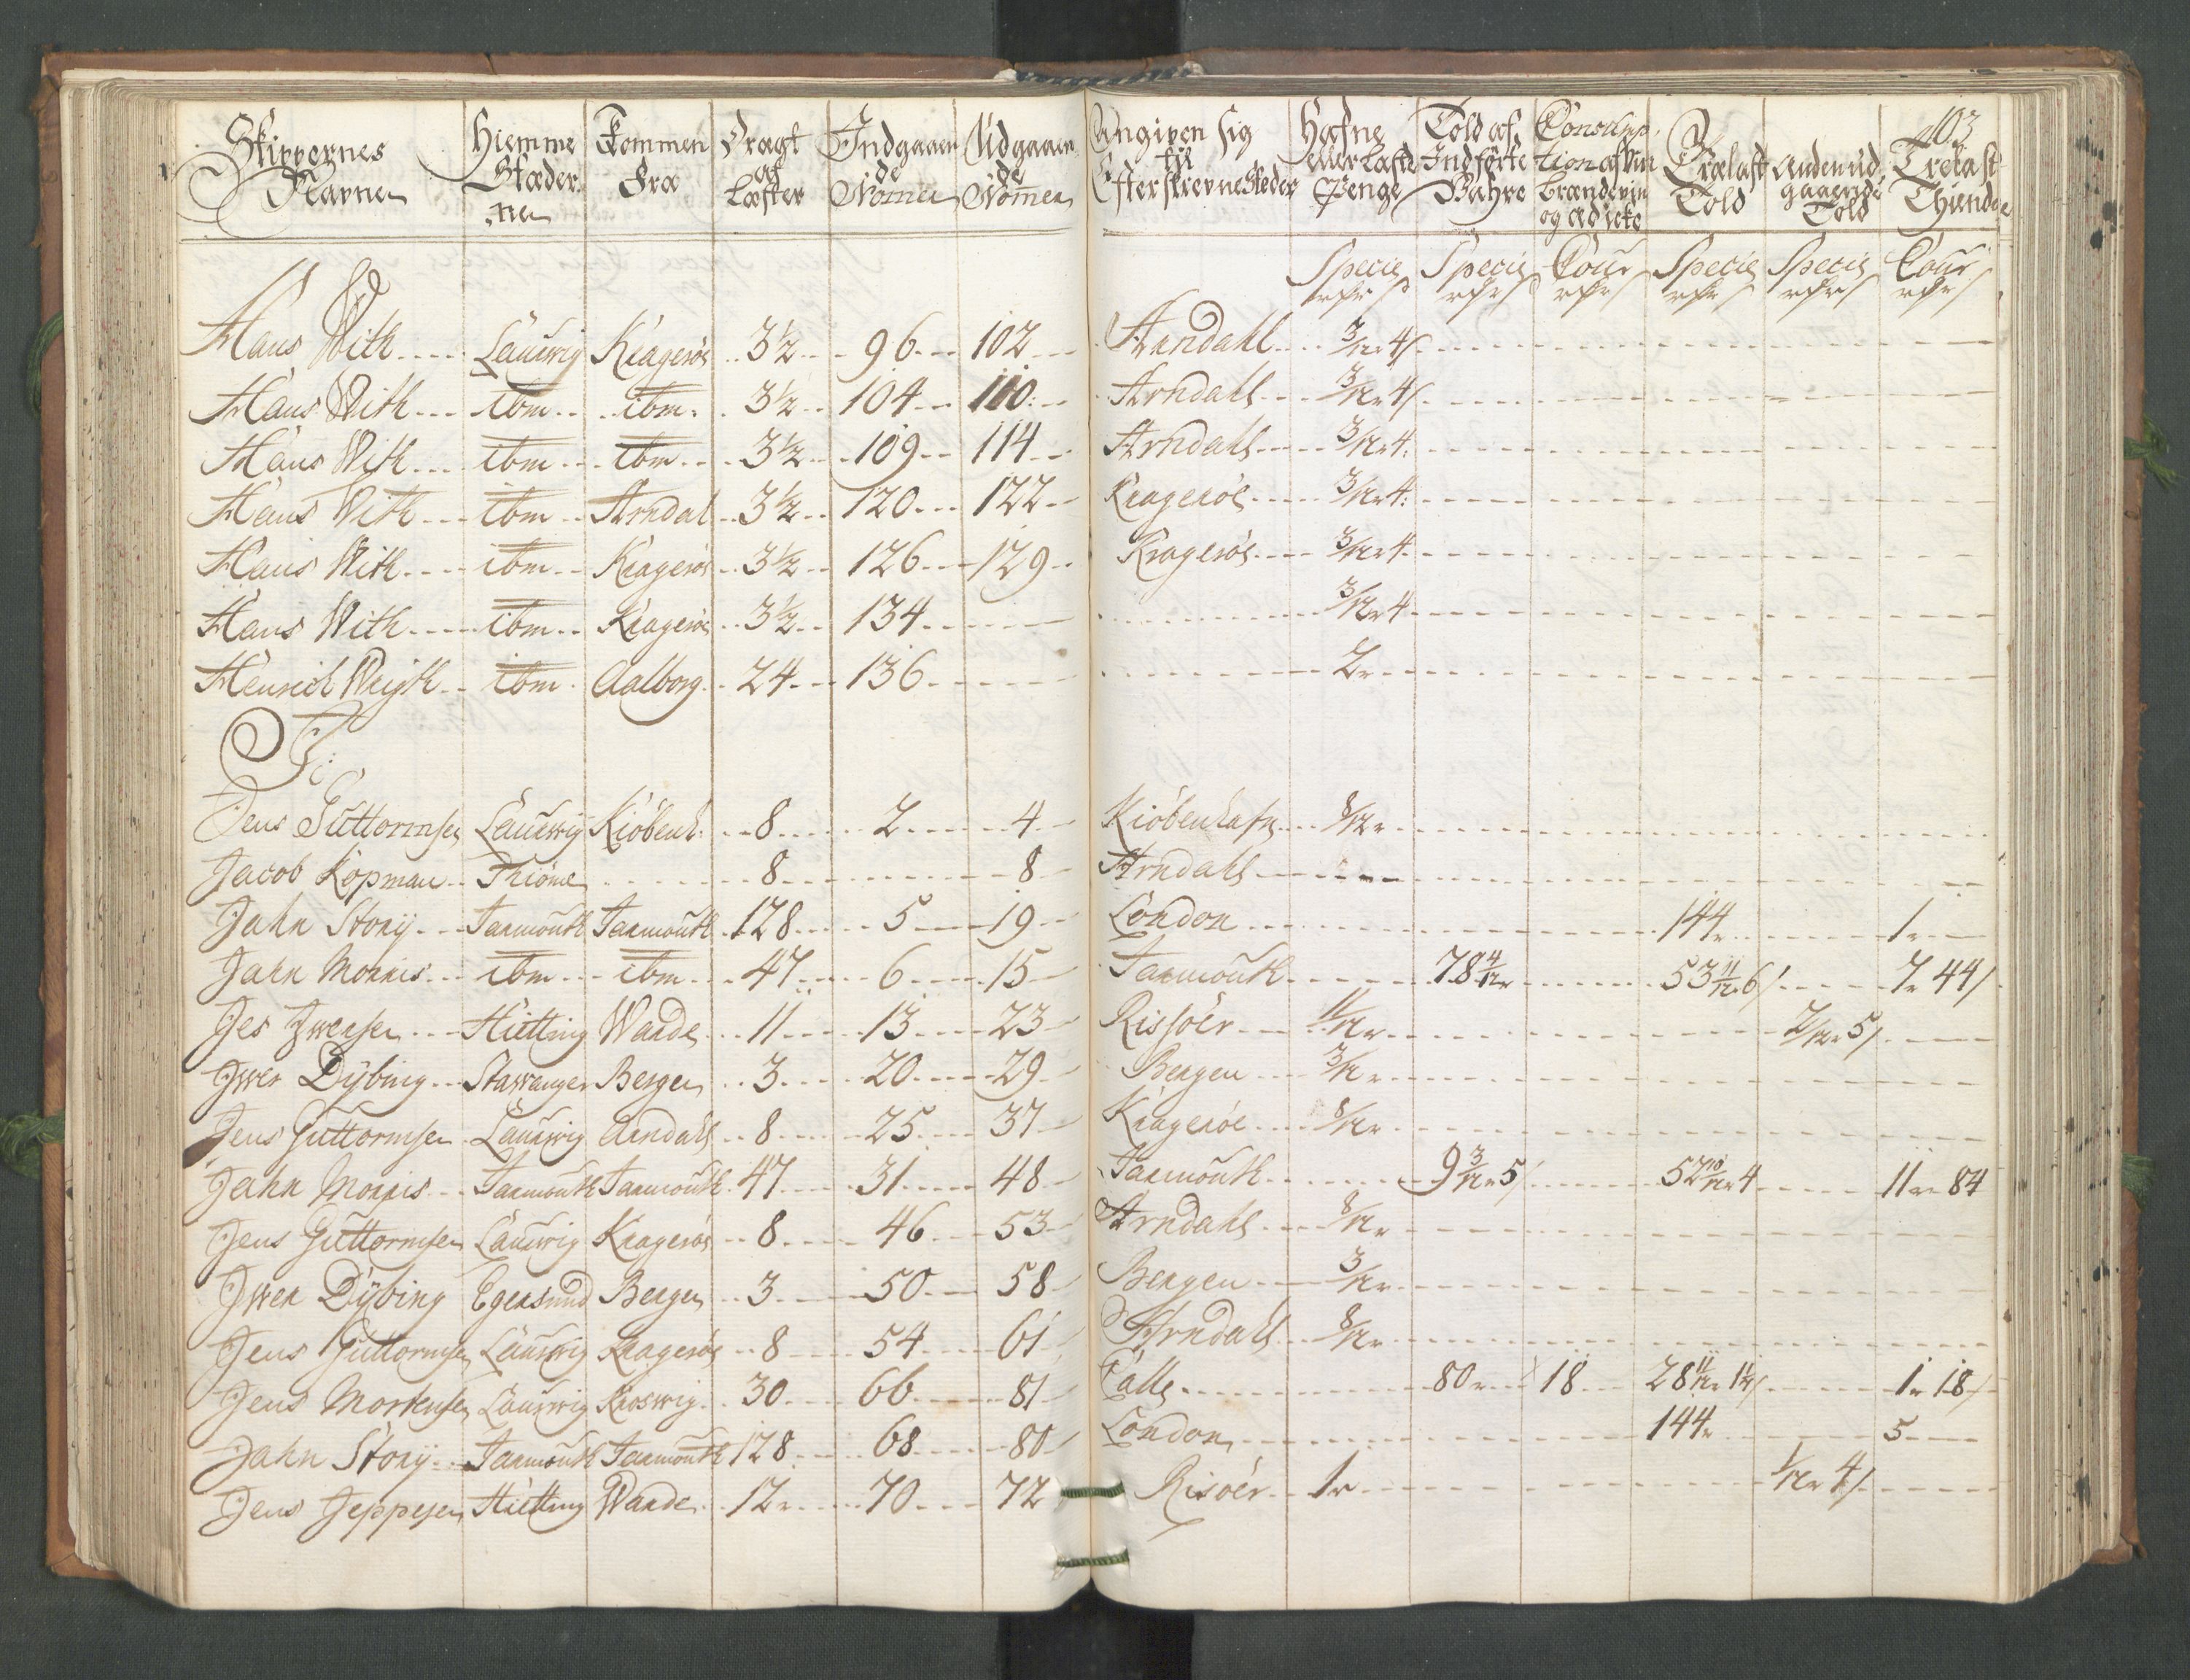 103
Skippernes Navne | Hiemme Stæderne | Kommen Fra | Dragt af Læster | Indgaaende Nomer | Udgaaende Nomer | Angiven sig til Efterskrevne Steder | Hafne eller Laste Penge | Told af Indførte Wahre | Consumption af Viin Brændeviin og Ædicke | Trælast Told | Anden udgaaende Told | Trælast Thiende
Specie | Specie | Cour | Specie | Specie | Cour
Hans With | Laurwig | Kragerøe | 3½ | 96 | 102 | Arndahl | 3/12 r 4 s
Hans With | ibm | ibm | 3½ | 104 | 110 | Arndahl | 3/12 r 4 s
Hans With | ibm | ibm | 3½ | 109 | 114 | Arndahl | 3/12 r 4
Hans With | ibm | Arndal | 3½ | 120 | 122 | Kragerøe | 3/12 r 4
Hans With | ibm | Kragerøe | 3½ | 126 | 129 | Kragerøe | 3/12 r 4
Hans With | ibm | Kragerøe | 3½ | 134 | 3/12 r 4
Henrich Wrigth | ibm | Aalborg | 24 | 136 | 2 r
J:
Jens Guttormsen | Laurwig | Kiøbenh: | 8 | 2 | 4 | Kiøbenhafn | 8/12 r
Jacob Kopman | Thiöme | 8 | 8 | Arndahl
Jahn Story | Jarmouth | Jarmouth | 128 | 5 | 19 | London | 144 r | 1 r
Jahn Morris | ibm | ibm | 47 | 6 | 15 | Jarmouth | 78 4/12 r | 53 11/12 r 6 s | 7 r 44 s
Jes Iwersen | Hietting | Warde | 11 | 13 | 23 | Rissøer | 11/12 r | 2/12 r 5 s
Iwer Dybing | Stawanger | Bergen | 3 | 20 | 29 | Bergen | 3/12 r
Jens Guttormsen | Laurwig | Arndahl | 8 | 25 | 37 | Kragerøe | 8/12 r
Jahn Morris | Jarmouth | Jarmouth | 47 | 31 | 48 | Jarmouth | 9 3/12 r 5 s | 52 10/12 r 4 | 11 r 84
Jens Guttormsen | Laurwig | Kragerøe | 8 | 46 | 53 | Arndahl | 8/12 r
Iwer Dybing | Egersund | Bergen | 3 | 50 | 58 | Bergen | 3/12 r
Jens Guttormsen | Laurwig | Kragerøe | 8 | 54 | 61 | Arndahl | 8/12 r
Jens Mortensen | Laurwig | Kroswig | 30 | 66 | 81 | 80 r | 18 | 28 11/12 r | 1 r 18 s
Jahn Story | Jarmouth | Jarmouth | 128 | 68 | 80 | London | 144 r | 5
Jens Jeppesen | Hietting | Warde | 12 | 70 | 72 | Risøer | 1 r | 1/12 r 4 s